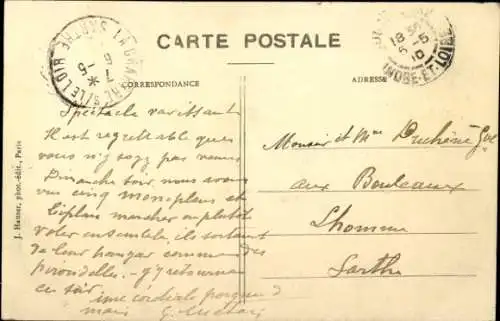 CARTE POSTALE
CORRESPONDANCE
ADRESSE
LA CHARTRE S/LE LOIR SARTHE
INDRE-ET-LOIRE
18
6-5
10
J. Hauser, phot.-édit., Paris
Spectacle ravissant
Il est regrettable que
vous n'y soyez pas venus
Dimanche soir, nous avons
vu cinq monoplans et
biplans marcher ou plutôt
voler ensemble, ils sortaient
de leur hangar comme des
hirondelles - j'y retourne
ce soir
une cordiale poignée d
main
Monsieur et Mme Duchêne
aux Bouleaux
Lhomme
Sarthe